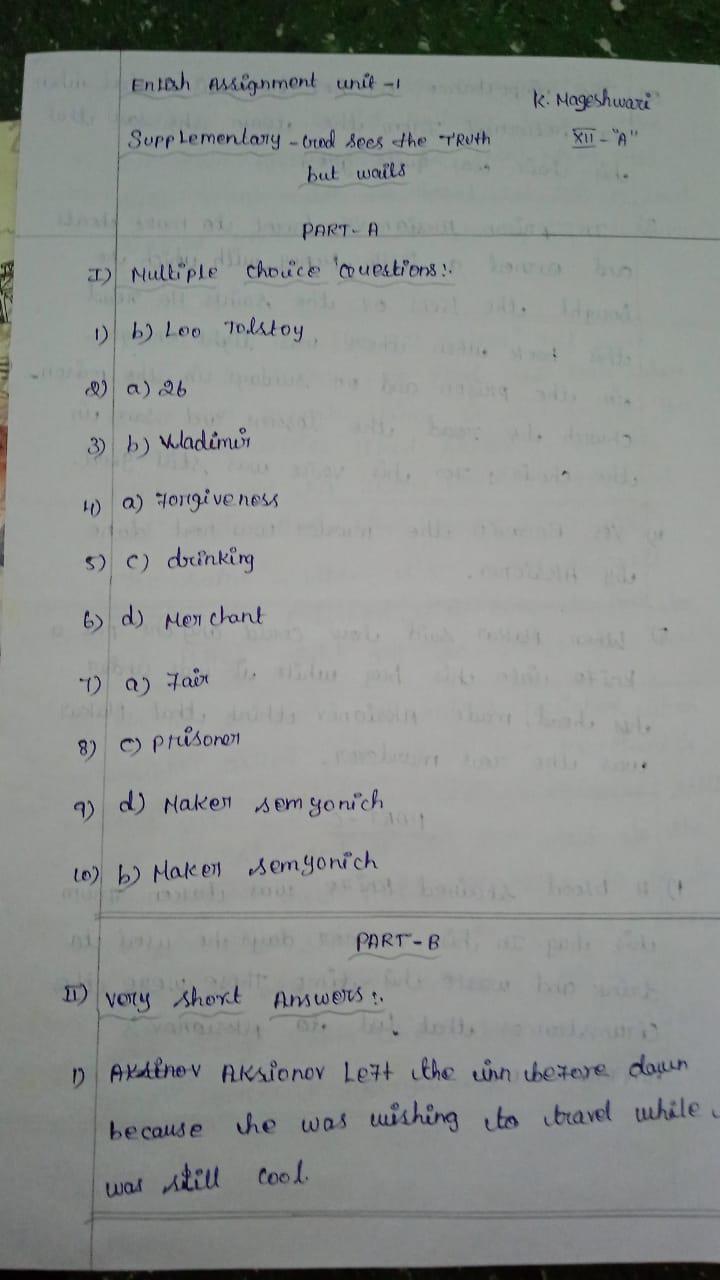 English Assignment unit -1
K. Mageshwari
Supplementary - God sees the TRUTH
XII - "A"
but waits
PART- A
I) Multiple choice Questions:.
1) b) Leo Tolstoy
2) a) 26
3) b) Vladimir
4) a) Forgiveness
5) c) drinking
6) d) Merchant
7) a) Fair
8) c) prisoner
9) d) Maker semyonich
10) b) Maker semyonich
PART-B
II) very short Answers:.
1) Aksionov Left the inn before dawn
because he was wishing to travel while
was still cool.